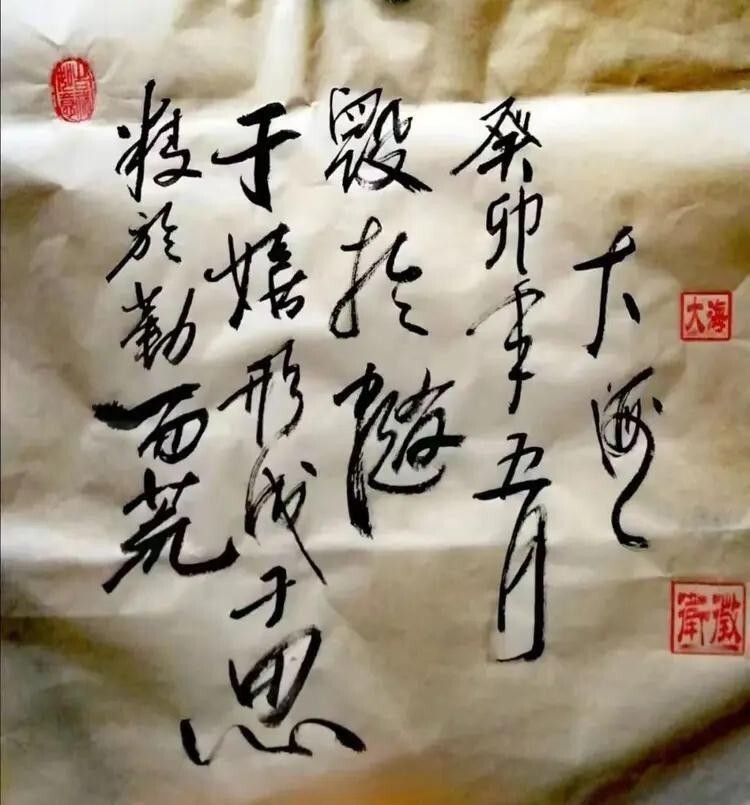 精於勤而荒
于嬉形成于思
毁於随
癸卯年五月
大海
大海